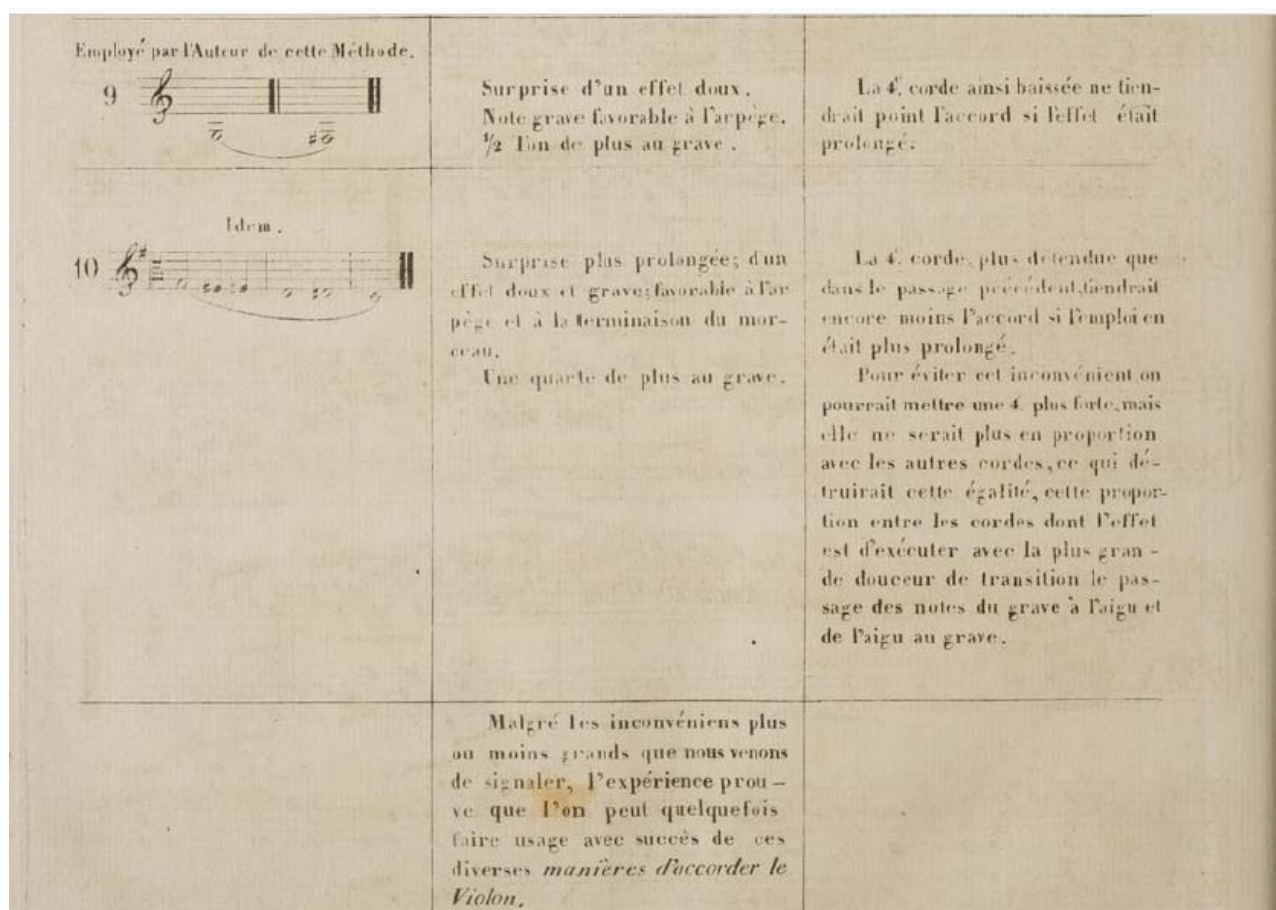 Employé par l'Auteur de cette Méthode.
9
Surprise d'un effet doux.
Note grave favorable à l'arpège.
1/2 Ton de plus au grave.
La 4e. corde ainsi baissée ne tien-
drait point l'accord si l'effet était
prolongé.
Idem.
10
Surprise plus prolongée; d'un
effet doux et grave; favorable à l'ar
pège et à la terminaison du mor-
ceau.
Une quarte de plus au grave.
La 4e. corde, plus détendue que
dans le passage précédent, tiendrait
encore moins l'accord si l'emploi en
était plus prolongé.
Pour éviter cet inconvénient on
pourrait mettre une 4e. plus forte, mais
elle ne serait plus en proportion
avec les autres cordes, ce qui dé-
truirait cette égalité, cette propor-
tion entre les cordes dont l'effet
est d'exécuter avec la plus gran-
de douceur de transition le pas-
sage des notes du grave à l'aigu et
de l'aigu au grave.
Malgré les inconvéniens plus
ou moins grands que nous venons
de signaler, l'expérience prou-
ve que l'on peut quelquefois
faire usage avec succès de ces
diverses manières d'accorder le
Violon.